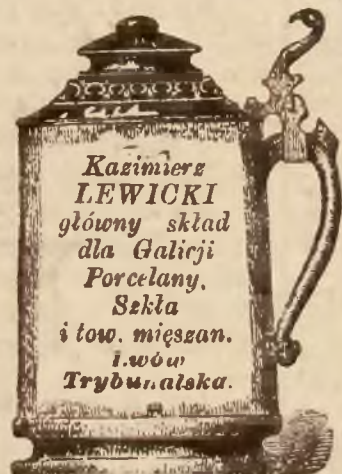 Kazimierz
LEWICKI
główny skład
dla Galicji
Porcelany,
Szkła
i tow. mięszan.
Lwów
Trybunalska.